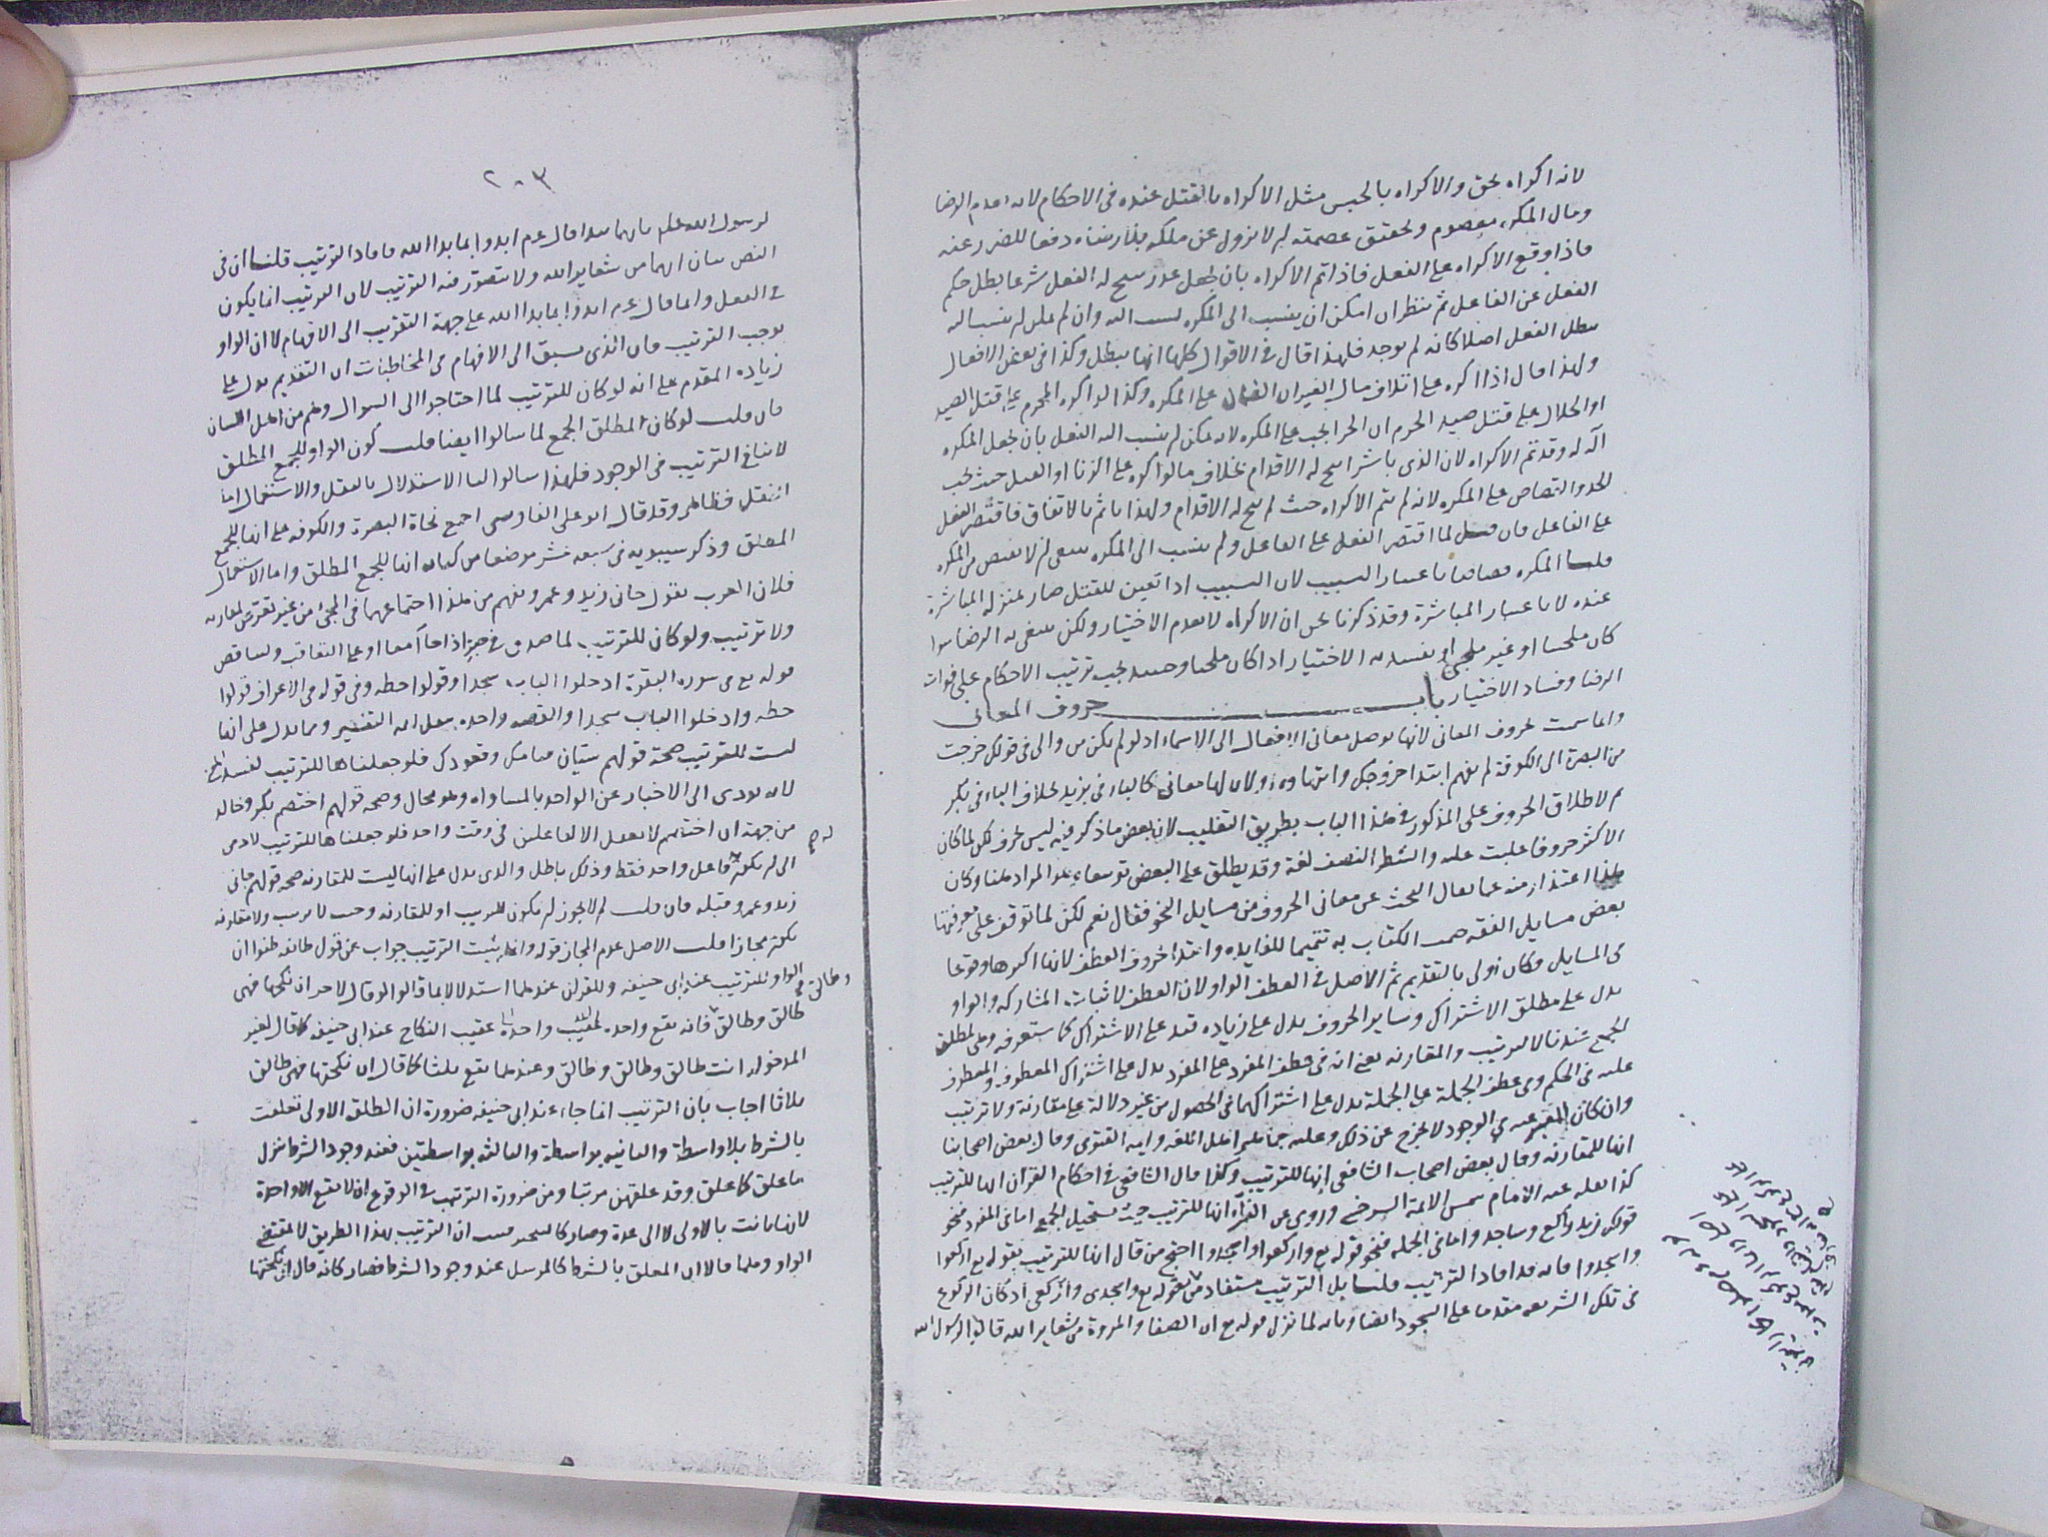 لانه اكراه بحق والاكراه بالحبس مثل الاكراه بالقتل عنده فى الاحكام لانه اعدم الرضا
ومال المكره معصوم وتحقيق عصمته ان لا يزول عن ملكه بلا رضاه دفعا للضرر عنه
فاذا وقع الاكراه على الفعل فاذا تم الاكراه بان يجعل عذر يبيح له الفعل شرعا بطل حكم
الفعل عن الفاعل ثم ينظر ان امكن ان ينسب الى المكره ينسب اليه وان لم يمكن لم ينسب اليه
يبطل الفعل اصلا كانه لم يوجد فلهذا قال فى الاقوال كلها انها يبطل وكذا فى بعض الافعال
ولهذا قال اذا اكره على اتلاف مال الغير ان الضمان على المكره وكذا لو اكره المحرم على قتل الصيد
او الحلال على قتل صيد الحرم ان الجزا يجب على المكره لانه يمكن ان ينسب اليه الفعل بان يجعل المكره
آلة له وقد تم الاكراه لان الذى باشر ابيح له الاقدام بخلاف ما لو اكره على الزنا او القتل حيث يجب
الحد والقصاص على المكره لانه لم يتم الاكراه حيث لم يبح له الاقدام ولهذا ياثم بالاتفاق فاقتصر الفعل
على الفاعل فان قيل لما اقتصر الفعل على الفاعل ولم ينسب الى المكره ينبغى ان لا يقتص من المكره
قلنا المكره قصاصا باعتبار التسبيب لان التسبيب اذا تعين للقتل صار بمنزلة المباشرة
عنده لا باعتبار المباشرة وقد ذكرنا نحن ان الاكراه لا يعدم الاختيار ولكن ينتفى به الرضا سوا
كان ملجئا او غير ملجئ او يفسد به الاختيار اذا كان ملجئا وحينئذ يجب ترتيب الاحكام على فوات
الرضا وفساد الاختيار باب حروف المعانى
وانما سميت حروف المعانى لانها توصل معانى الافعال الى الاسماء اذ لو لم يكن من والى فى قولك خرجت
من البصرة الى الكوفة لم يفهم ابتدا خروجك وانتهاوه ولان لها معانى كالباء فى بزيد بخلاف الباء فى بكر
ثم لاطلاق الحروف على المذكور فى هذا الباب بطريق التغليب لان بعض ما ذكر فيه ليس بحرف لكن لما كان
الاكثر حروفا غلبت عليه والشطر النصف لغة وقد يطلق على البعض توسعا وهو المراد هنا وكان
هذا اعتذار منه عما يقال البحث عن معانى الحروف من مسايل النحو فقال نعم لكن لما توقف على معرفتها
بعض مسايل الفقه ختمت الكتاب به تتميما للفايدة وابتدا بحروف العطف لانها اكثرها وقوعا
فى المسايل فكان اولى بالتقديم ثم الاصل فى العطف الواو لان العطف لاثبات المشاركة والواو
يدل على مطلق الاشتراك وساير الحروف يدل على زيادة قيد على الاشتراك كما ستعرفه وهى لمطلق
الجمع عندنا لا الترتيب والمقارنه يعنى انه فى عطف المفرد على المفرد يدل على اشتراك المعطوف والمعطوف
عليه فى الحكم وفى عطف الجملة على الجملة يدل على اشتراكهما فى الحصول من غير دلالة على مقارنة ولا ترتيب
وان كان الوجود لا يخرج عن ذلك وعليه جماهير اهل اللغه وايمة الفتوى وقال بعض اصحابنا
انها للمقارنه وقال بعض اصحاب الشافعى انها للترتيب وكذا قال الشافعى فى احكام القرآن انها للترتيب
كذا نقله عنه الامام شمس الائمة السرخسى وروى عن الفراء انها للترتيب حيث يستحيل الجمع اما فى المفرد فنحو
قولك زيد راكع وساجد واما فى الجمله فنحو قوله تع واركعوا واسجدوا احتج من قال انها للترتيب بقوله تع اركعوا
واسجدوا فانه قد افاد الترتيب قلنا بل الترتيب مستفاد من قوله تع واسجدى واركعى اذ كان الركوع
فى تلك الشريعه مقدما على السجود ايضا وبانه لما نزل قوله تع ان الصفا والمروة من شعاير الله قالوا لرسول الله
٢٠٣
لرسول الله علم بايهما نبدا قال عم ابدوا بما بدا الله فافاد الترتيب قلنا ان فى
النص بيان انهما من شعاير الله ولا يتصور فيه الترتيب لان الترتيب انما يكون
فى الفعل وانما قال عم ابدوا بما بدا الله على جهة التقريب الى الافهام لا ان الواو
توجب الترتيب فان الذى يسبق الى الافهام فى المخاطبات ان التقديم يدل على
زيادة المقدم على انه لو كان للترتيب لما احتاجوا الى السوال وهم من اهل اللسان
فان قلت لو كان لمطلق الجمع لما سالوا ايضا قلت كون الواو للجمع المطلق
لا ينافى الترتيب فى الوجود فلهذا سالوا لنا الاستدلال بالنقل والاستعمال اما
النقل فظاهر وقد قال ابو على الفارسى اجمع نحاة البصرة والكوفه على انها للجمع
المطلق وذكر سيبويه فى سبعه عشر موضعا من كتابه انها للجمع المطلق واما الاستعمال
فلان العرب تقول جانى زيد وعمرو يفهم من هذا اجتماعهما فى المجئ من غير تعرض لمقارنه
ولا ترتيب ولو كان للترتيب لما صدق فى خبره اذا جاآ معا او على التعاقب ولتناقض
قوله تع فى سورة البقرة ادخلوا الباب سجدا وقولوا حطه وفى قوله فى الاعراف قولوا
حطه وادخلوا الباب سجدا والقصه واحده بنقل ايمه التفسير ومما يدل على انها
ليست للترتيب صحة قولهم سيان قيامك وقعودك فلو جعلناها للترتيب لفسد المعنى
لانه يودى الى الاخبار عن الواحد بالمساواه وهو محال وصحه قولهم اختصم بكر وخالد
من جهة ان اختصم لا يعقل الا لفاعلين فى وقت واحد فلو جعلناها للترتيب لادى
الى ان يكون له فاعل واحد فقط وذلك باطل والذى يدل على انها ليست للمقارنه صحه قولهم جانى
زيد وعمرو قبله فان قلت لم لا يجوز ان يكون للترتيب او للمقارنه وحيث لا ترتيب ولا مقارنه
يكون مجازا قلت الاصل عدم المجاز قوله وانما يثبت الترتيب جواب عن قول طائفه ظنوا ان
الواو للترتيب عند ابى حنيفه وللقران عندهما استدلالا بما قالوا لو قال لاحد ان نكحتها فهى
طالق وطالق فانه يقع واحده عقيب النكاح عند ابى حنيفه كما قال لغير
وطالق
المدخوله انت طالق وطالق وطالق وعندهما يقع ثلاثا كما قال ان نكحتها فهى طالق
ثلاثا اجاب بان الترتيب انما جاء عند ابى حنيفه ضرورة ان الطلقه الاولى تعلقت
بالشرط بلا واسطة والثانيه بواسطة والثالثه بواسطتين فعند وجود الشرط ينزل
ما علق كما علق وقد علقهن مرتبا ومن ضرورة الترتيب فى الوقوع ان لا يقع الا واحدة
لانها بانت بالاولى لا الى عدة وصار كالمنجز ان الترتيب بهذا الطريق لا بمقتضى
الواو وقلنا قالا ان المعلق بالشرط كالمرسل عند وجود الشرط فصار كانه قال ان نكحتها